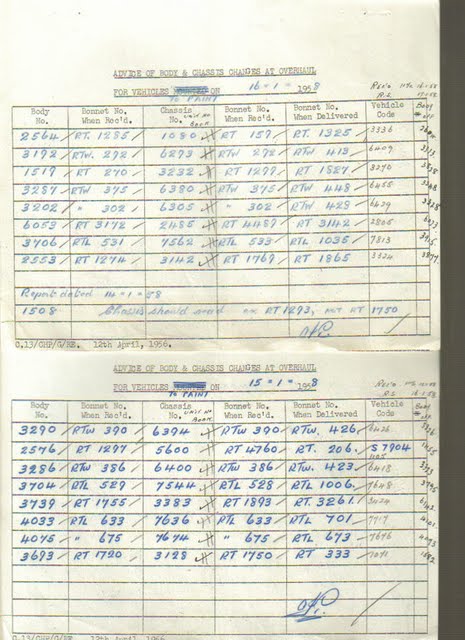 ADVICE OF BODY & CHASSIS CHANGES AT OVERHAUL
FOR VEHICLES ON 16 = 1 = 1958
TO PAINT
Body No. Bonnet No. When Rec'd. Chassis No. UNIT NO BOOK Bonnet No. When Rec'd. Bonnet No. When Delivered Vehicle Code Body
2564 RT. 1285 1080 RT 157 RT. 1325 3336
3192 RTW. 292 6293 RTW 292 RTW 413 6409
1519 RT 270 3232 RT 1297 RT 1827 3270
3287 RTW 375 6380 RTW 375 RTW 448 6455
3202 " 302 6305 " 302 RTW 429 6429
6053 RT 3172 2485 RT 4489 RT 3142 2805
3706 RTL 531 7562 RTL 533 RTL 1035 7313
2553 RT 1274 3142 RT 1769 RT 1865 3334
Report dated 14 = 1 = 58
1508 Chassis should read ex RT 1293, not RT 1750
C.13/GHP/G/RE. 12th April, 1956.
ADVICE OF BODY & CHASSIS CHANGES AT OVERHAUL
FOR VEHICLES ON 15 = 1 = 1958
TO PAINT
Body No. Bonnet No. When Rec'd. Chassis No. UNIT NO BOOK Bonnet No. When Rec'd. Bonnet No. When Delivered Vehicle Code Body
3290 RTW 390 6394 RTW 390 RTW. 426 6426
2576 RT 1297 5600 RT 4760 RT. 206 S 7904
3286 RTW 386 6400 RTW 386 RTW. 423 6418
3704 RTL 529 7544 RTL 528 RTL 1006 7648
3739 RT 1755 3383 RT 1893 RT. 3261 3424
4033 RTL 633 7636 RTL 633 RTL 701 7717
4075 " 675 7674 " 675 RTL 673 7676
3693 RT 1720 3128 RT 1750 RT 333
C.13/GHP/G/RE. 12th April, 1956